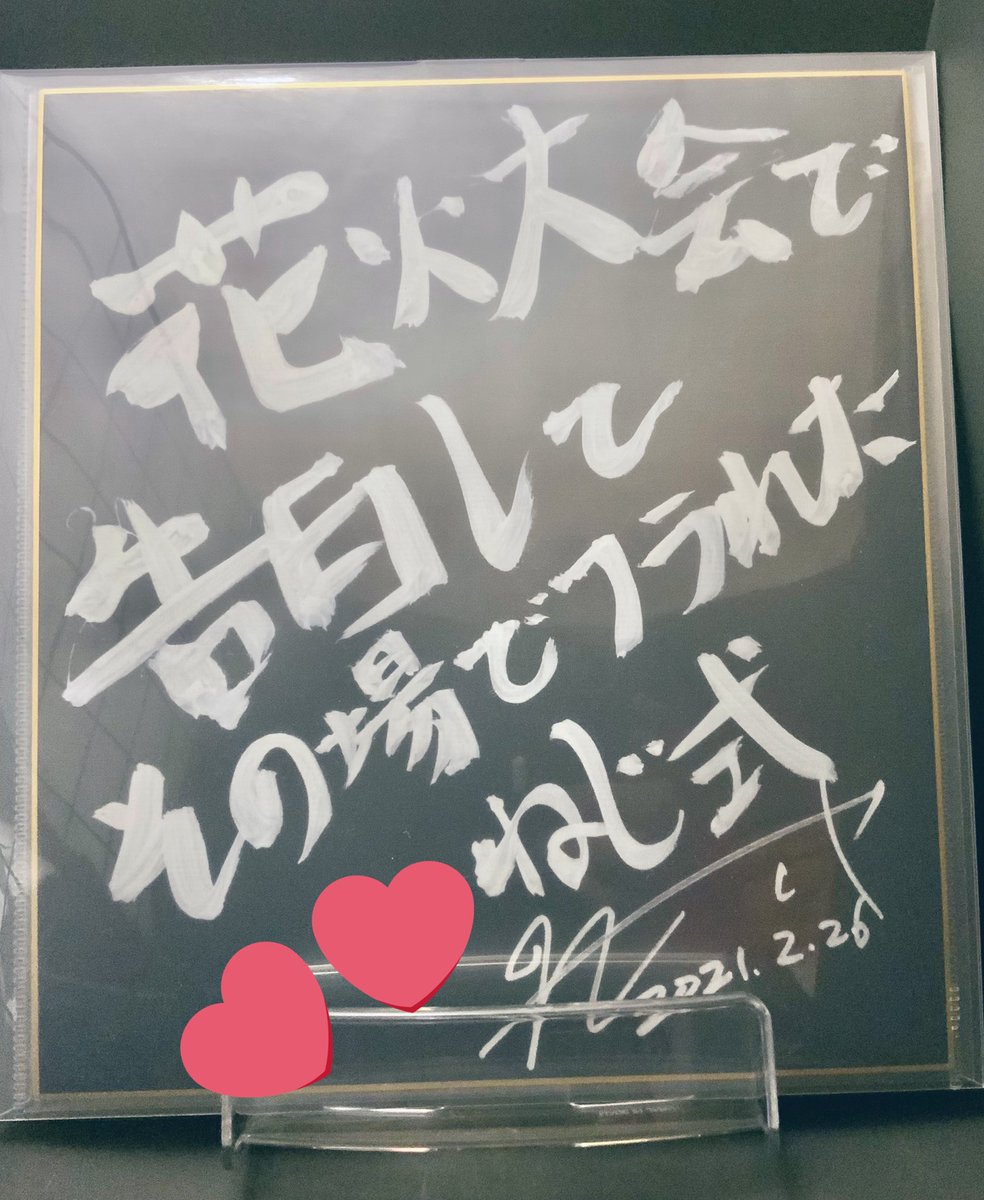 花火大会で
告白して
その場でフラれた
ねじ式
2021.2.26